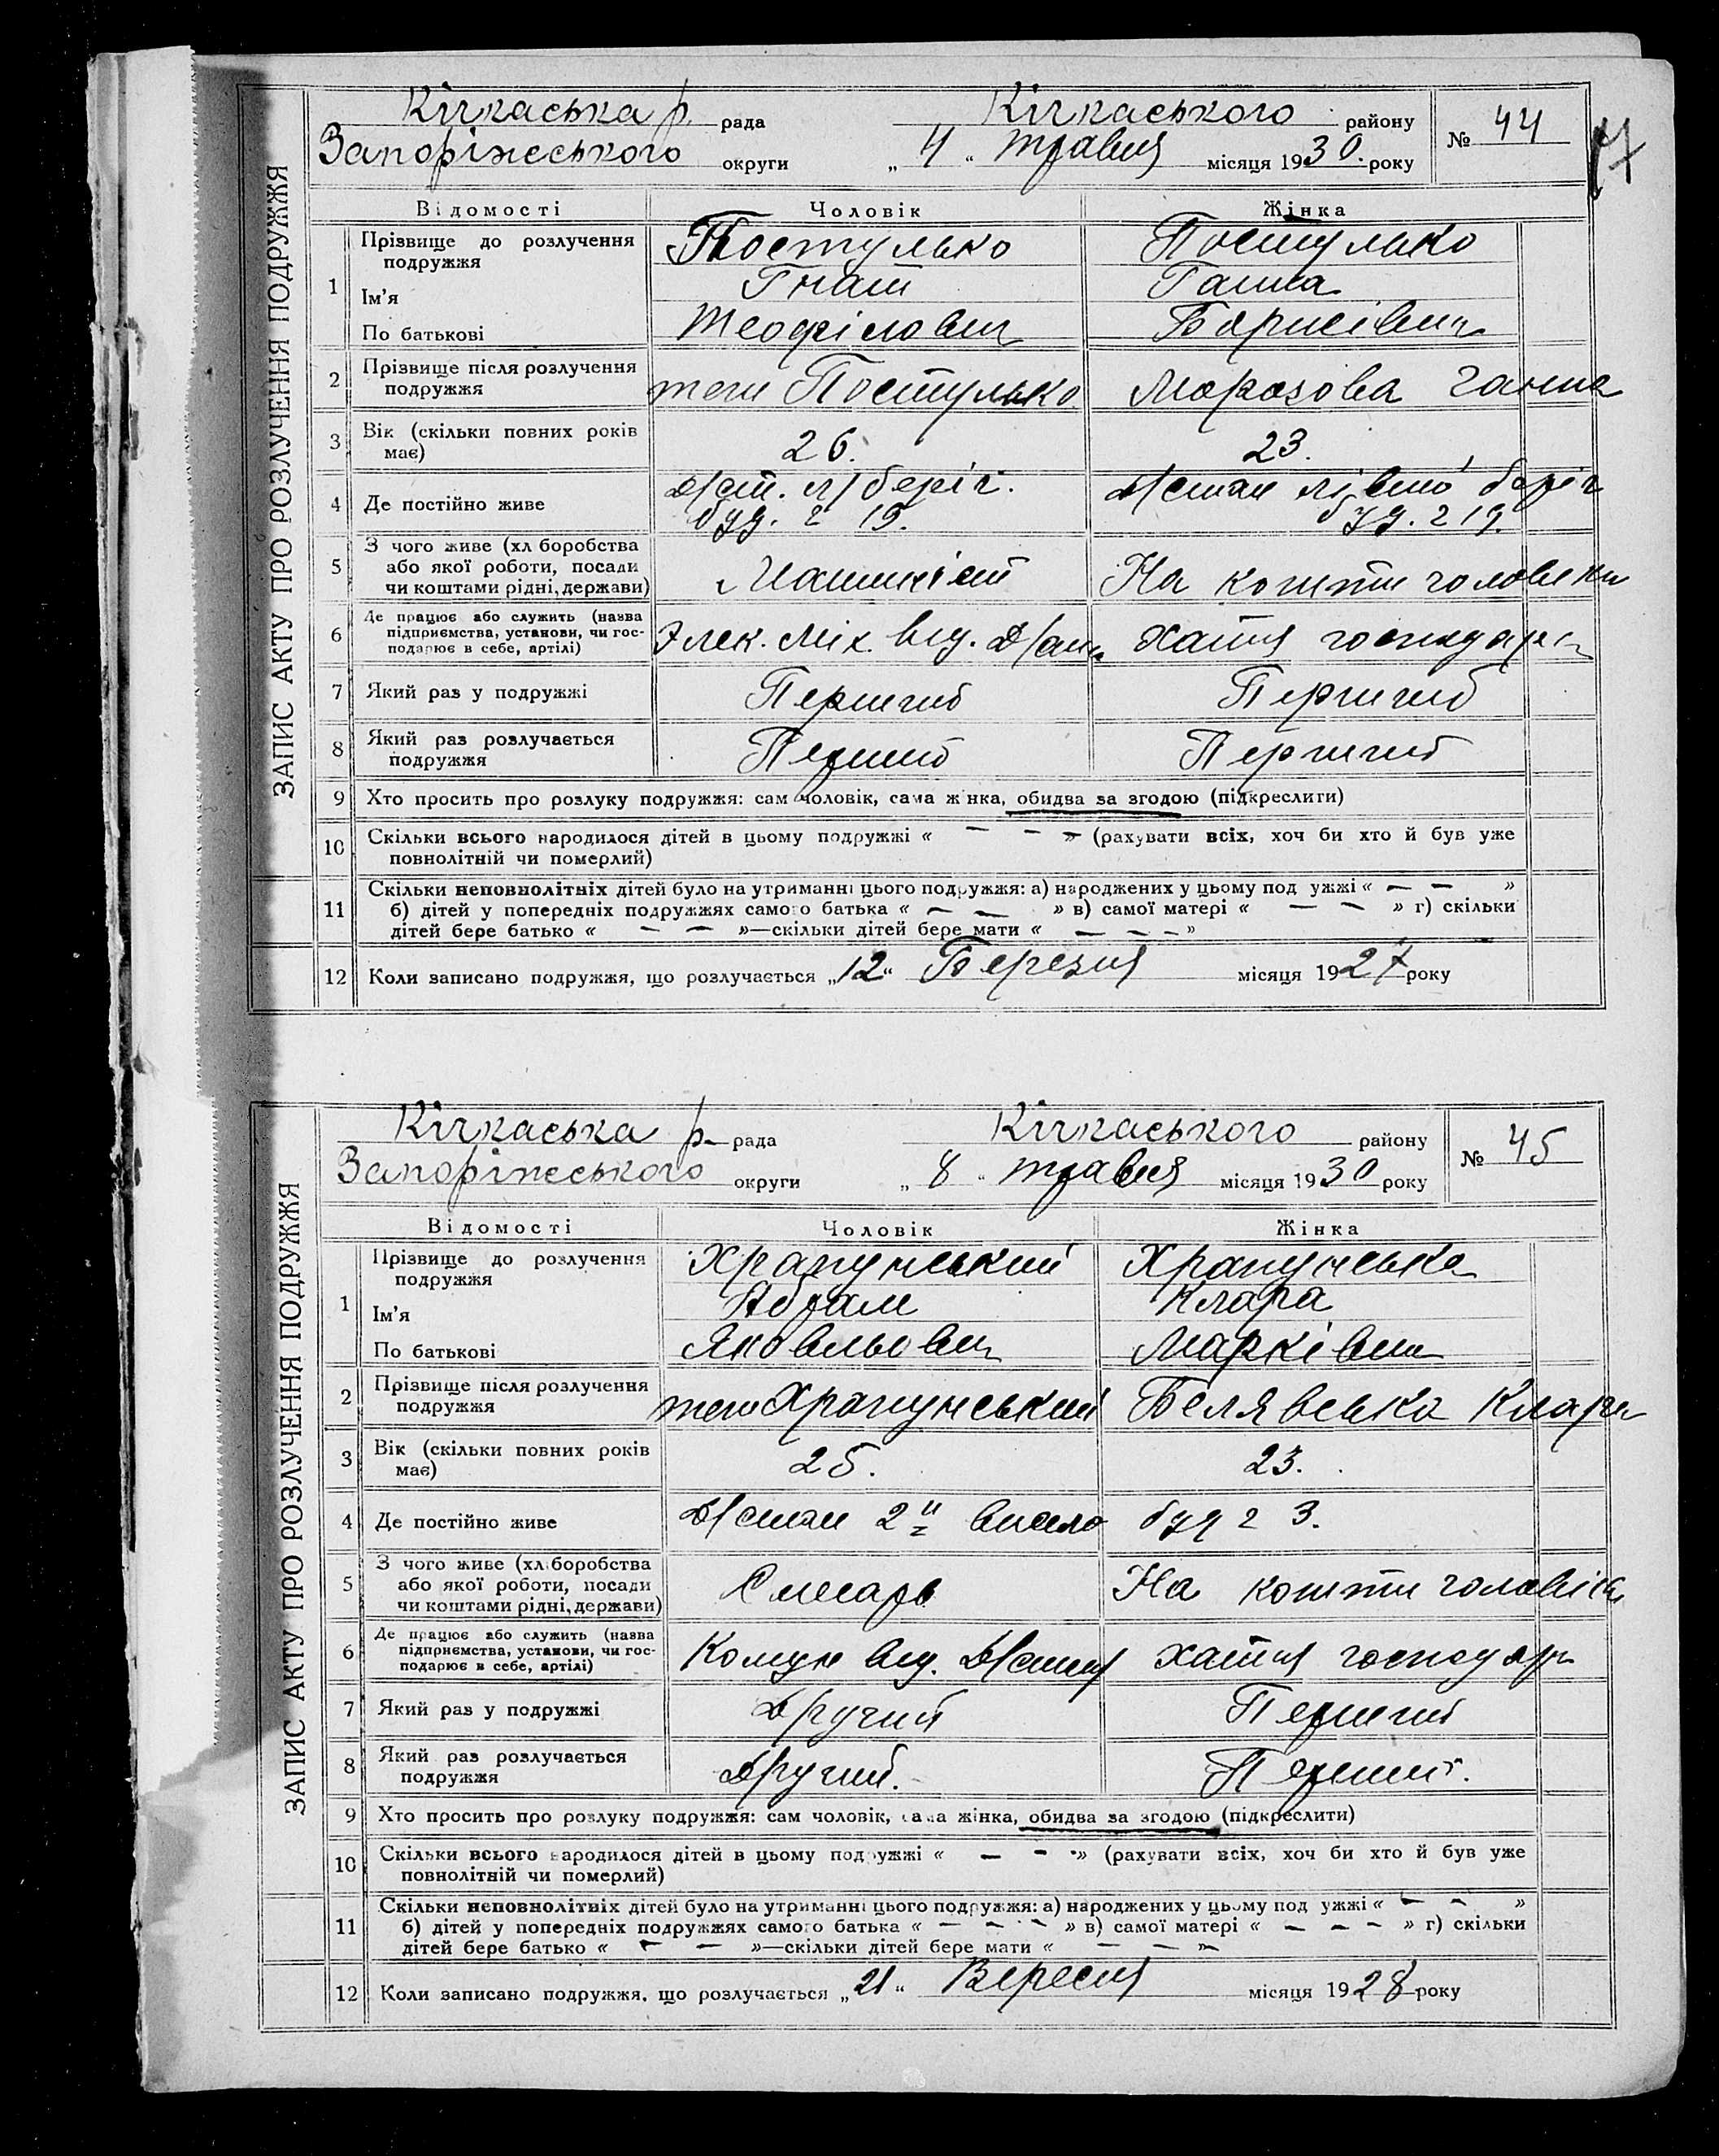 ЗАПИС АКТУ ПРО РОЗЛУЧЕННЯ ПОДРУЖЖЯ
Кічкаська р. рада Кічкаського району № 44
Запоріжського округи „ 4 “ травня місяця 1930. року
Відомості Чоловік Жінка
1 Прізвище до розлучення подружжя Постулько Постулько
Ім’я Гнат Ганна
По батькові Теофілович Борисівн
2 Прізвище після розлучення подружжя теж Постулько Морозова Ганна
3 Вік (скільки повних років має) 26. 23.
4 Де постійно живе Д/ст. л/беріг. Д/стан лівий беріг
буд. 2 19. буд. 2 19.
5 З чого живе (хліборобства або якої роботи, посади чи коштами рідні, держави) Машиніст На кошти чоловіка
6 Де працює або служить (назва підприємства, установи, чи господарює в себе, артілі) Элек. Мех. від. Д/стан Хатня господарк
7 Який раз у подружжі Перший Перший
8 Який раз розлучається подружжя Перший Перший
9 Хто просить про розлуку подружжя: сам чоловік, сама жінка, обидва за згодою (підкреслити)
10 Скільки всього народилося дітей в цьому подружжі « — — — » (рахувати всіх, хоч би хто й був уже
повнолітній чи померлий)
11 Скільки неповнолітніх дітей було на утриманні цього подружжя: а) народжених у цьому подружжі « — — »
б) дітей у попередніх подружжях самого батька « — — » в) самої матері « — — » г) скільки
дітей бере батько « — — »—скільки дітей бере мати « — — — »
12 Коли записано подружжя, що розлучається „12“ Березня місяця 1927 року
ЗАПИС АКТУ ПРО РОЗЛУЧЕННЯ ПОДРУЖЖЯ
Кічкаська р. рада Кічкаського району № 45
Запоріжського округи „ 8 “ травня місяця 1930 року
Відомості Чоловік Жінка
1 Прізвище до розлучення подружжя Храпунський Храпунська
Ім’я Абрам Клара
По батькові Яковльович Марківн
2 Прізвище після розлучення подружжя теж Храпунський Белявська Клара
3 Вік (скільки повних років має) 25. 23.
4 Де постійно живе Д/стан 2й висело буд 2 3.
5 З чого живе (хліборобства або якої роботи, посади чи коштами рідні, держави) Слюсарь На кошти чоловіка
6 Де працює або служить (назва підприємства, установи, чи господарює в себе, артілі) Комун від. Д/стан хатня господарк
7 Який раз у подружжі Другий Перший
8 Який раз розлучається подружжя Другий. Перший.
9 Хто просить про розлуку подружжя: сам чоловік, сама жінка, обидва за згодою (підкреслити)
10 Скільки всього народилося дітей в цьому подружжі « — — » (рахувати всіх, хоч би хто й був уже
повнолітній чи померлий)
11 Скільки неповнолітніх дітей було на утриманні цього подружжя: а) народжених у цьому подружжі « — — »
б) дітей у попередніх подружжях самого батька « — — — » в) самої матері « — — — » г) скільки
дітей бере батько « — — »—скільки дітей бере мати « — — »
12 Коли записано подружжя, що розлучається „21“ Вересня місяця 1928 року